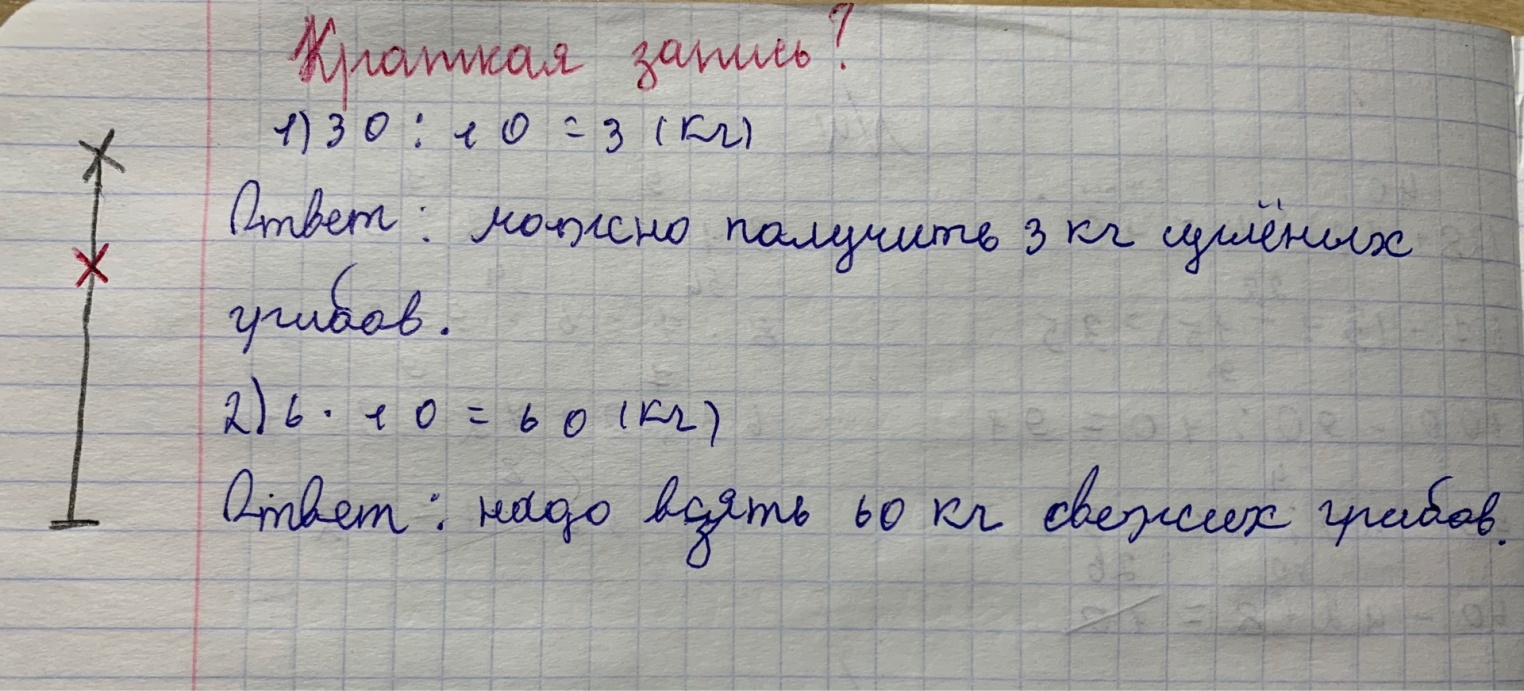 Краткая запись?
1) 30 : 10 = 3 (кг)
Ответ: можно получить 3 кг сушёных
грибов.
2) 6 · 10 = 60 (кг)
Ответ: надо взять 60 кг свежих грибов.